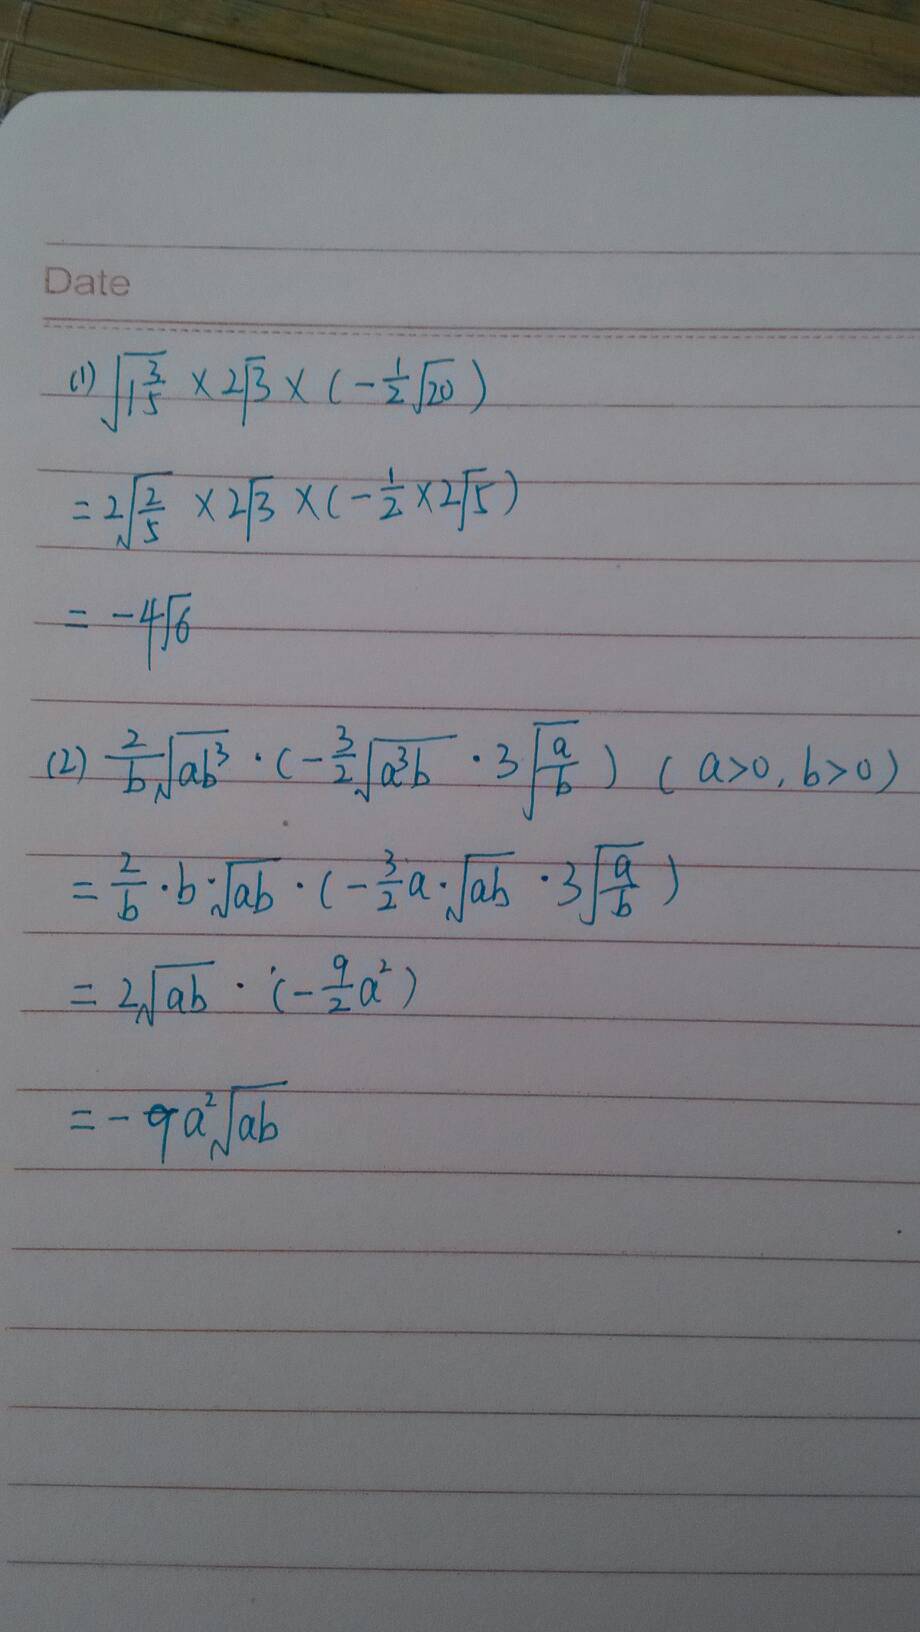 Date
(1) √(1 3/5) × 2√3 × (-1/2 √20)
= 2√(2/5) × 2√3 × (-1/2 × 2√5)
= -4√6
(2) 2/b √(ab³) · (-3/2 √(a³b) · 3√(a/b)) (a>0, b>0)
= 2/b · b · √(ab) · (-3/2 a · √(ab) · 3√(a/b))
= 2√(ab) · (-9/2 a²)
= -9a²√(ab)